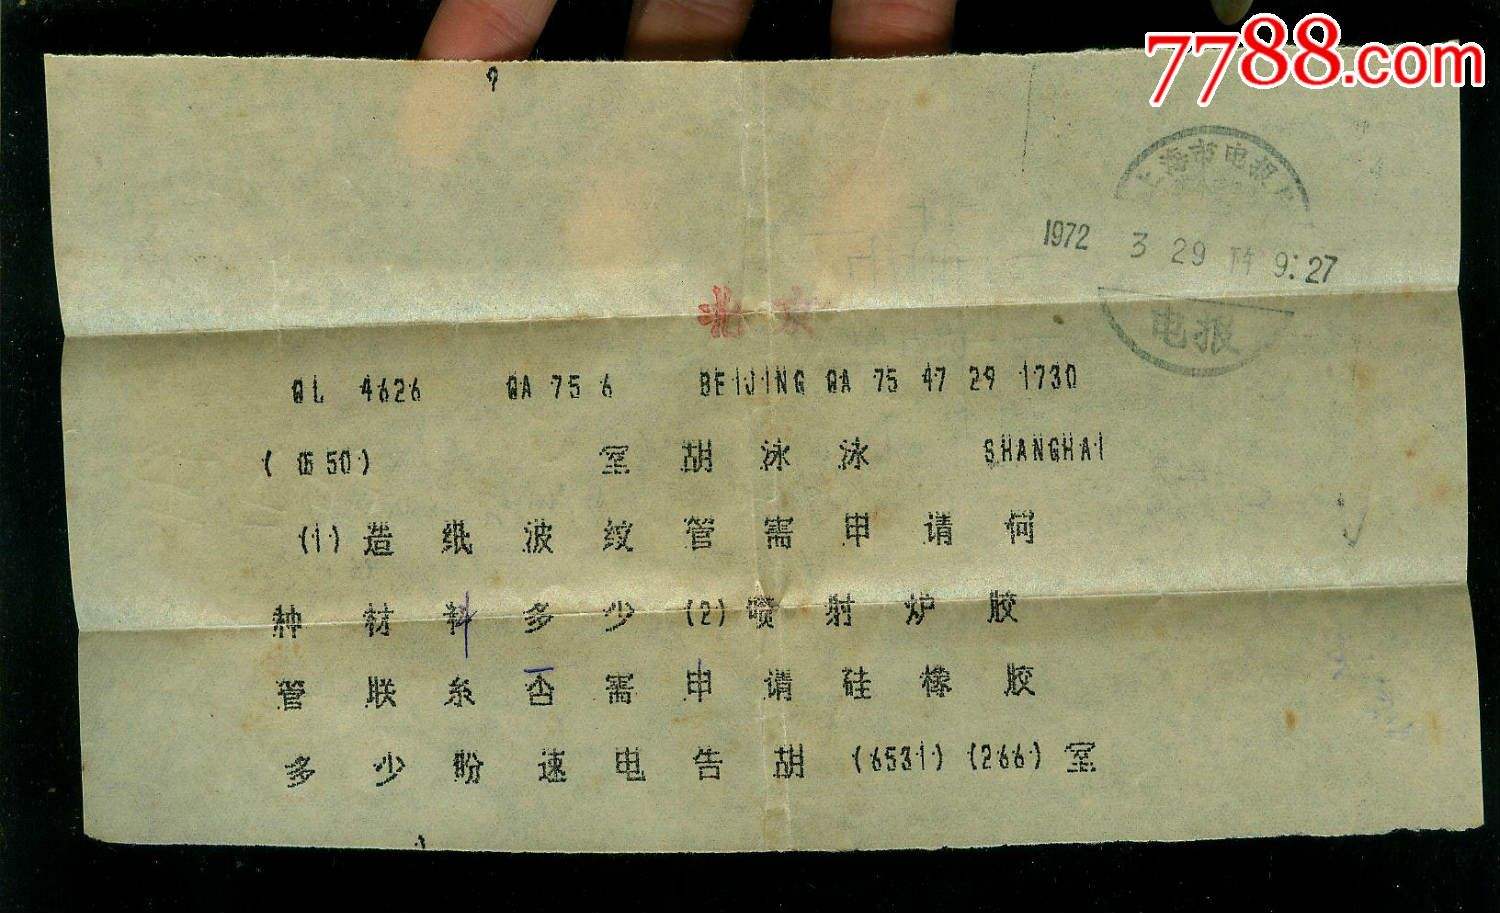 7788.com
上海市电报局
1972 3 29 下午 9:27
电报
北京
QL 4626 QA 75 6 BEIJING QA 75 47 29 1730
50) 室 胡 泳 泳 SHANGHAI
(1) 造 纸 波 纹 管 需 申 请 何
种 材 料 多 少 (2) 喷 射 炉 胶
管 联 系 否 需 申 请 硅 橡 胶
多 少 盼 速 电 告 胡 (6531) (266) 室